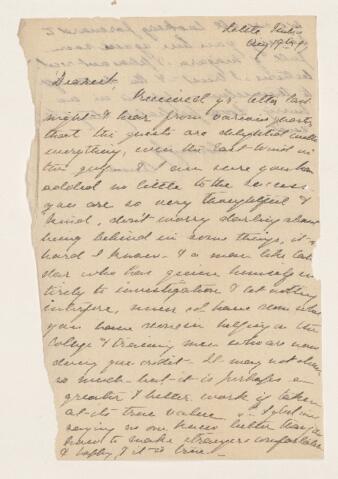 Aug 19th 9
Dearest,
Received yr letter last
night & hear from various parts
that the guests are delighted with
everything, even the East Wind in
the gulf. I am sure you have
added no little to the success
you are so very thoughtful &
kind, don't worry darling about
being behind in some things, it is
hard I know. & a man like
who has given himself en
tirely to investigation & let nothing
interfere, never have seen what
you have done in helping in the
College & training men who are now
doing you credit. It may not show
so much but it is perhaps a
greater & better work if taken
at its true value.
saying no one knew better than you
how to make strangers comfortable
& happy, & it is true.